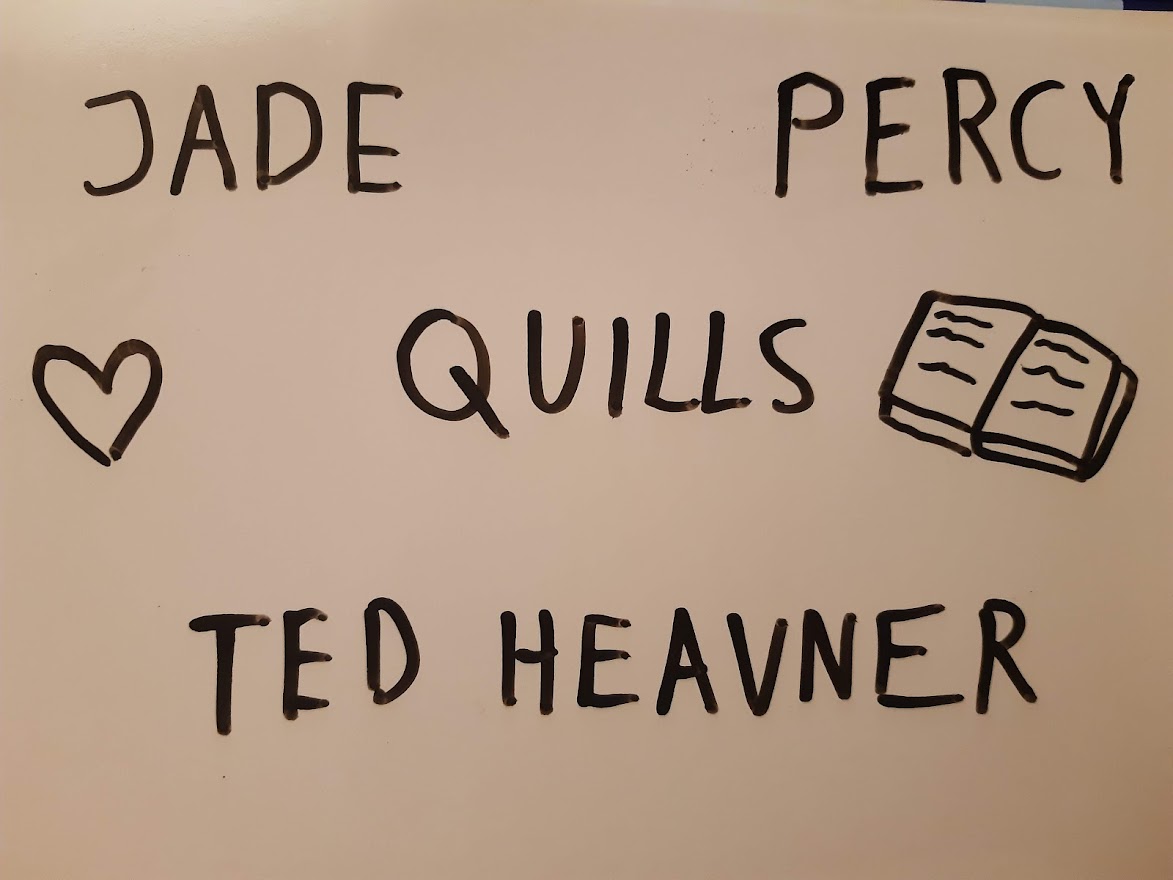 JADE PERCY
QUILLS
TED HEAVNER